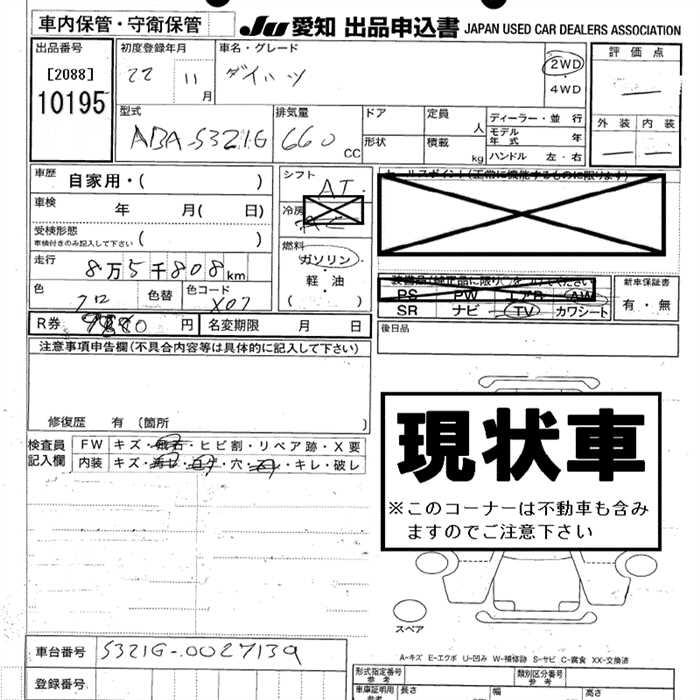 車内保管・守衛保管 JU 愛知 出品申込書 JAPAN USED CAR DEALERS ASSOCIATION
出品番号 [2088] 10195
初度登録年月 22 11月
車名・グレード ダイハツ
2WD・4WD
評価点 —
外装 — 内装 —
型式 ABA-S321G
排気量 660 CC
ドア 形状
定員 人 積載 kg
ディーラー・並行
モデル年式 年
ハンドル 左・右
車歴 自家用・( )
車検 年 月( 日)
受検形態 車検付きのみ記入して下さい ( )
走行 8万5千808km
色 クロ 色替 色コード X07
シフト AT
冷房
燃料 ガソリン・軽油 ( )
セールスポイント(正常に機能するものに限ります)
PS PW エアB AW
SR ナビ TV カワシート
新車保証書 有・無
後日品
R券 円 名変期限 月 日
注意事項申告欄(不具合内容等は具体的に記入して下さい)
修復歴 有 (箇所 )
検査員記入欄
FW キズ・飛石・ヒビ割・リペア跡・X要
内装 キズ・・・穴・・キレ・破レ
現状車
※このコーナーは不動車も含み
ますのでご注意下さい
スペア
A-キズ E-エクボ U-凹み W-補修跡 S-サビ C-腐食 XX-交換済
車台番号 S321G-0027139
登録番号
形式指定番号 参考 類別区分番号 参考
車庫証明用 参考 長さ 幅 高さ